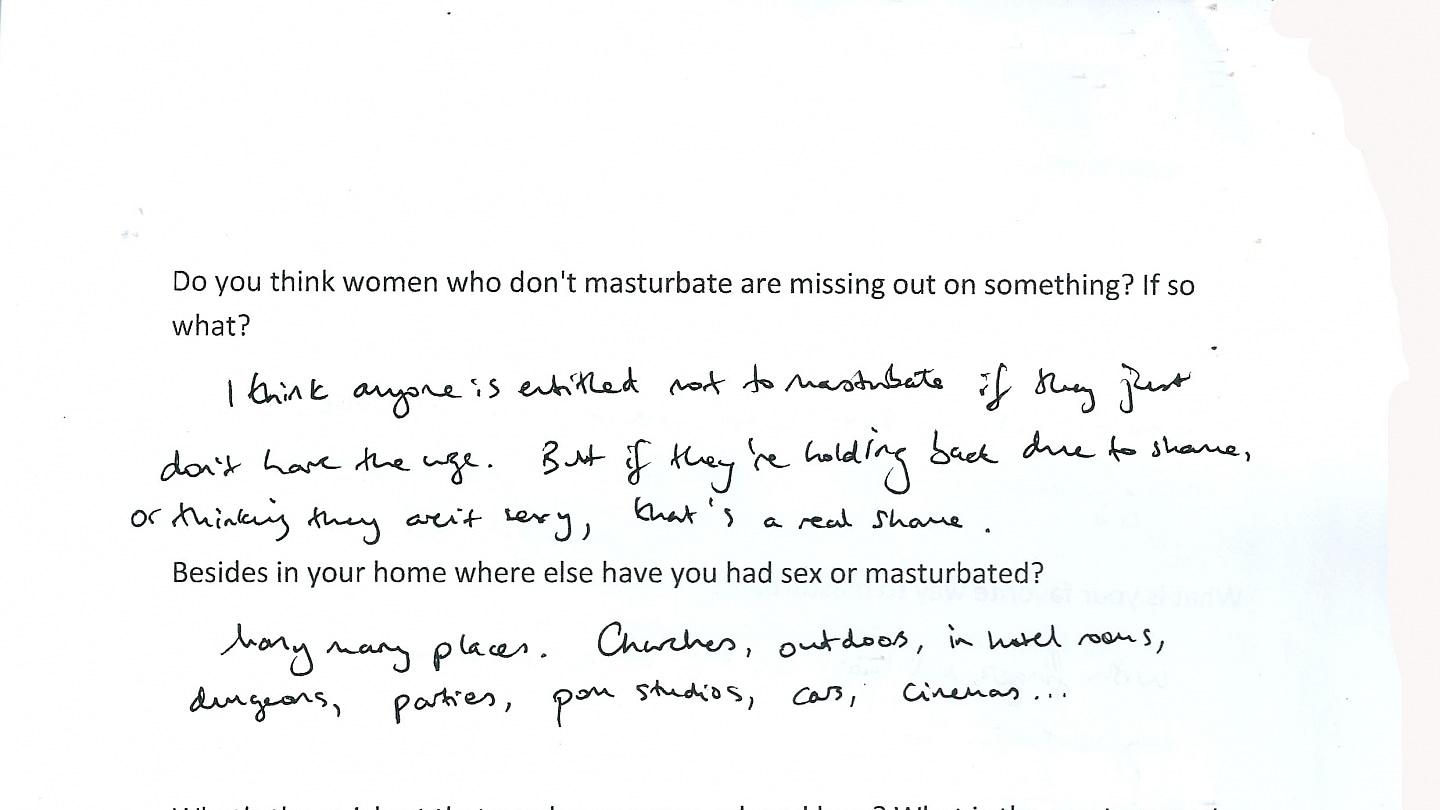 Do you think women who don't masturbate are missing out on something? If so
what?
I think anyone is entitled not to masturbate if they just
don't have the urge. But if they're holding back due to shame,
or thinking they aren't sexy, that's a real shame.
Besides in your home where else have you had sex or masturbated?
Many many places. Churches, outdoors, in hotel rooms,
dungeons, parties, porn studios, cars, cinemas...